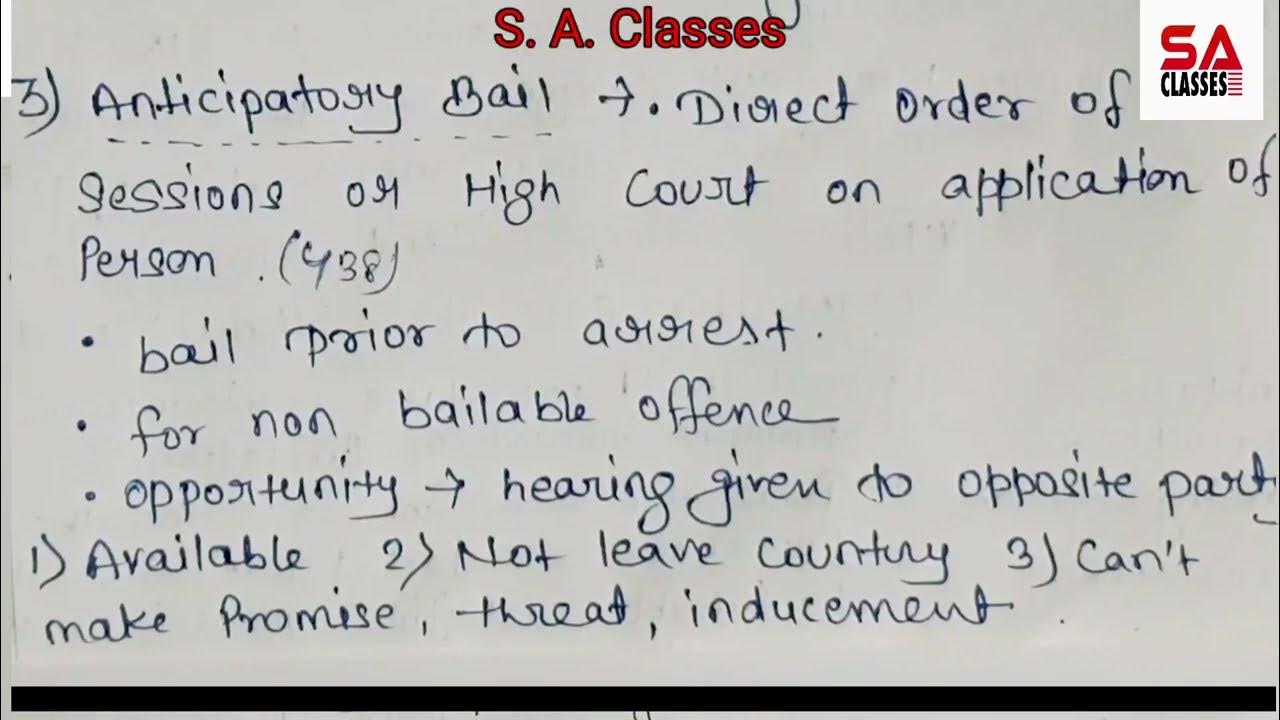 S. A. Classes
SA
CLASSES
3) Anticipatory Bail → . Direct order of
Sessions or High Court on application of
Person . (438)
• bail prior to arrest.
• for non bailable offence
• opportunity → hearing given to opposite party
1) Available 2) Not leave country 3) Can't
make Promise, threat, inducement .